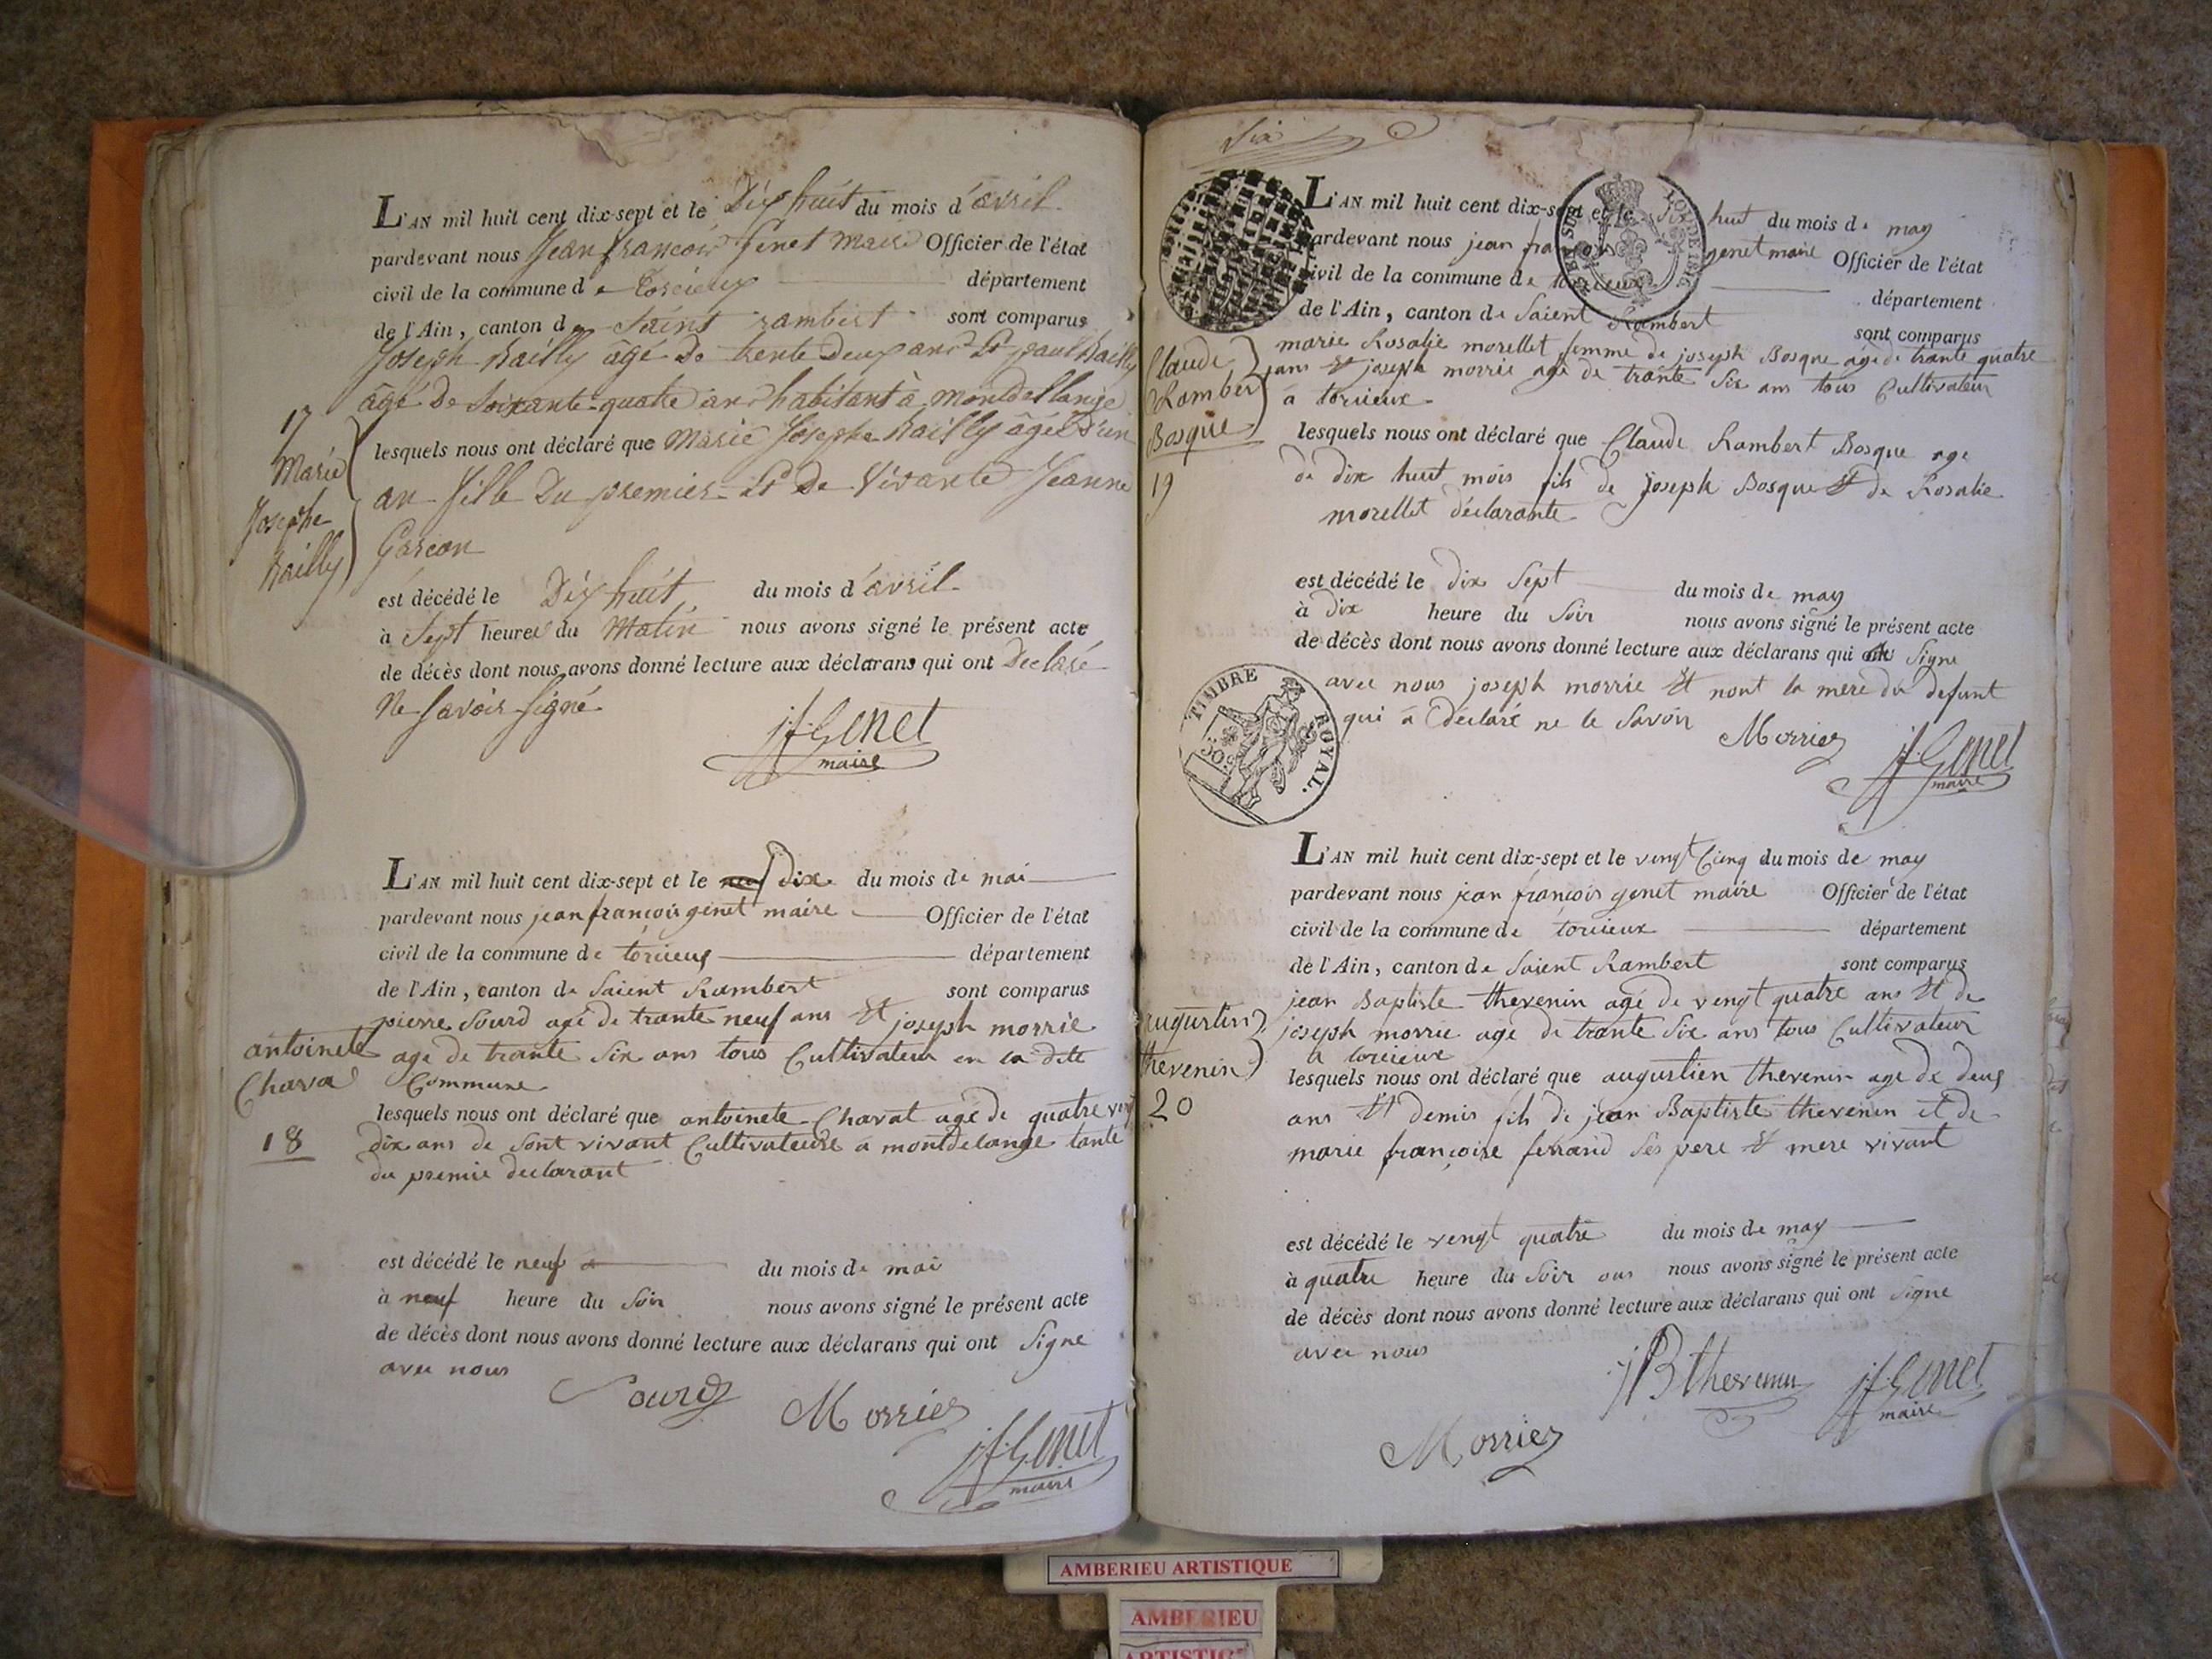 L'AN mil huit cent dix-sept et le Dix huit du mois d'avril
pardevant nous Jean francois Genet Maire Officier de l'état
civil de la commune de Torcieux département
de l'Ain, canton de Saint rambert sont comparus
Joseph Bailly âgé De trente Deux ans Et paul Bailly
âgé De Soixante quatre ans habitant à montdellange
17
Marie
Josephe
Bailly
lesquels nous ont déclaré que Marie Josephe Bailly âgée D'un
an fille Du premier Et De Vivante Jeanne
Gascon
est décédé le Dix huit du mois d'avril
à Sept heures du Matin nous avons signé le présent acte
de décès dont nous avons donné lecture aux déclarans qui ont Declaré
Ne Savoir Signé
jf Genet
maire
L'AN mil huit cent dix-sept et le dix du mois de mai
pardevant nous jean françois genet maire Officier de l'état
civil de la commune de torcieux département
de l'Ain, canton de Saient Rambert sont comparus
pierre Sourd age de trante neuf ans Et joseph morrie
age de trante Six ans tous Cultivateur en la dite
Commune
antoinete
Chava
18
lesquels nous ont déclaré que antoinete Chavat age de quatre vint
dix ans de Sont vivant Cultivateure a montdelange tante
du premie declarant
est décédé le neuf du mois de mai
à neuf heure du Soir nous avons signé le présent acte
de décès dont nous avons donné lecture aux déclarans qui ont Signe
avec nous
Sourd
Morriez
jf Genet
maire
Six
L'AN mil huit cent dix-sept et le dix huit du mois de may
pardevant nous jean françois genet maire Officier de l'état
civil de la commune de torcieux département
de l'Ain, canton de Saient Rambert sont comparus
marie Rosalie morellet femme de joseph Bosque age de trante quatre
ans Et joseph morrie age de trante Six ans tous Cultivateur
a torcieux
Claude
Ramber
Bosque
19
lesquels nous ont déclaré que Claude Rambert Bosque age
de dix huit mois fils de joseph Bosque Et de Rosalie
morellet déclarante
est décédé le dix Sept du mois de may
à dix heure du Soir nous avons signé le présent acte
de décès dont nous avons donné lecture aux déclarans qui Signe
avec nous joseph morrie Et nont la mere du defunt
qui a déclaré ne le Savoir
TIMBRE ROYAL.
50c
Morriez
jf Genet
maire
L'AN mil huit cent dix-sept et le vingt Cinq du mois de may
pardevant nous jean françois genet maire Officier de l'état
civil de la commune de torcieux département
de l'Ain, canton de Saient Rambert sont comparus
jean Baptiste thevenin age de vengt quatre ans Et de
joseph morrie age de trante Six ans tous Cultivateur
a torcieux
augustin
thevenin
20
lesquels nous ont déclaré que augustien thevenin age de deux
ans Et demis fils de jean Baptiste thevenin et de
marie françoise ferrand Ses pere Et mere vivant
est décédé le vengt quatre du mois de may
à quatre heure du Soir nous avons signé le présent acte
de décès dont nous avons donné lecture aux déclarans qui ont Signe
avec nous
jB thevenin
jf Genet
maire
Morriez
AMBERIEU ARTISTIQUE
AMBERIEU
ARTISTIQUE